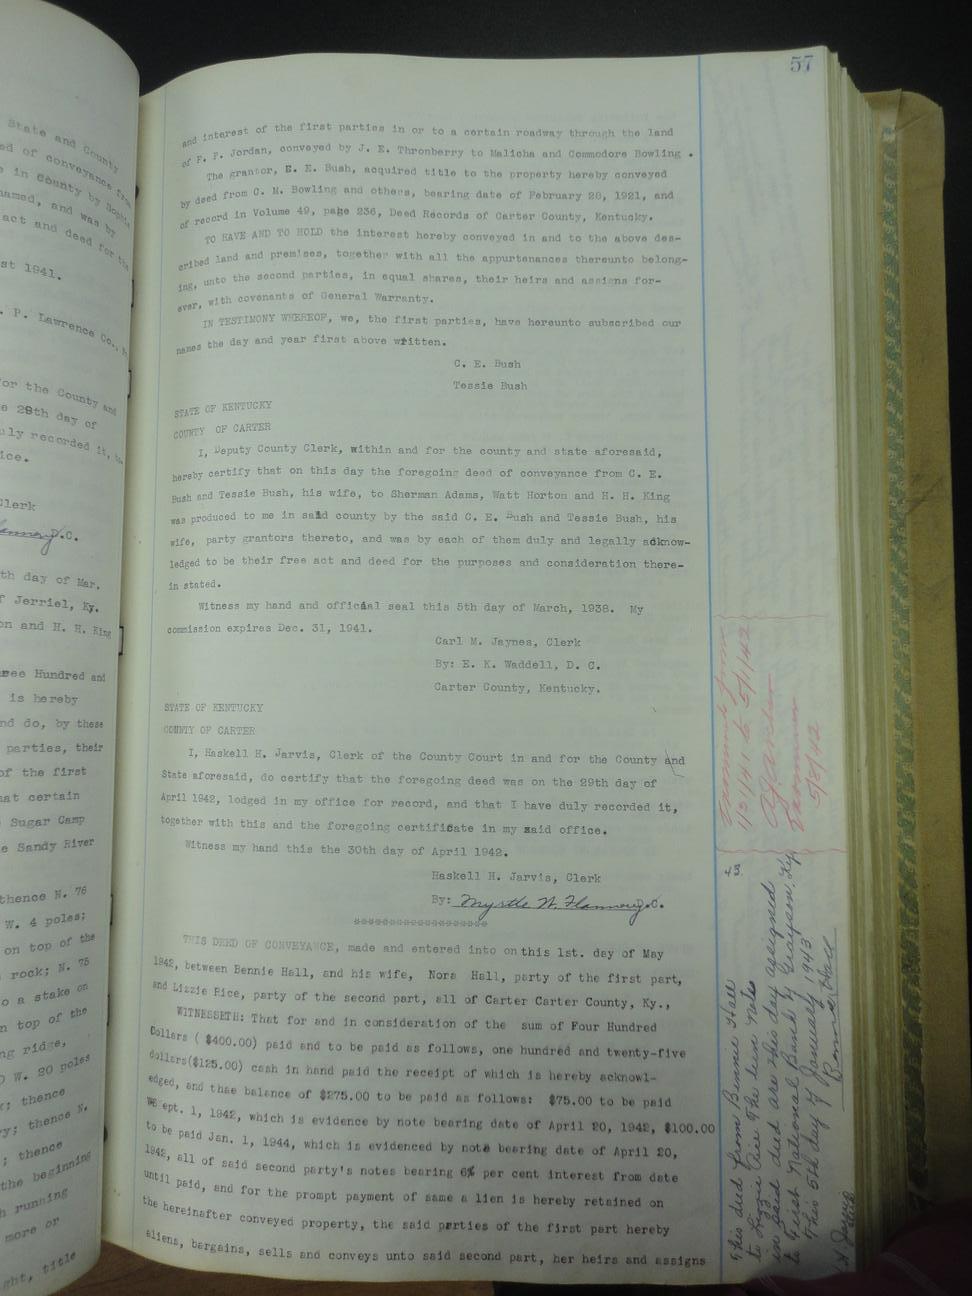 57
and interest of the first parties in or to a certain roadway through the land
of F. F. Jordan, conveyed by J. E. Thronberry to Malicha and Commodore Bowling .
The grantor, E. E. Bush, acquired title to the property hereby conveyed
by deed from C. M. Bowling and others, bearing date of February 26, 1921, and
of record in Volume 49, page 236, Deed Records of Carter County, Kentucky.
TO HAVE AND TO HOLD the interest hereby conveyed in and to the above des-
cribed land and premises, together with all the appurtenances thereunto belong-
ing, unto the second parties, in equal shares, their heirs and assigns for-
ever, with covenants of General Warranty.
IN TESTIMONY WHEREOF, we, the first parties, have hereunto subscribed our
names the day and year first above written.
C. E. Bush
Tessie Bush
STATE OF KENTUCKY
COUNTY OF CARTER
I, Deputy County Clerk, within and for the county and state aforesaid,
hereby certify that on this day the foregoing deed of conveyance from C. E.
Bush and Tessie Bush, his wife, to Sherman Adams, Watt Horton and H. H. King
was produced to me in said county by the said C. E. Bush and Tessie Bush, his
wife, party grantors thereto, and was by each of them duly and legally acknow-
ledged to be their free act and deed for the purposes and consideration there-
in stated.
Witness my hand and official seal this 5th day of March, 1938. My
commission expires Dec. 31, 1941.
Carl M. Jaynes, Clerk
By: E. K. Waddell, D. C.
Carter County, Kentucky.
STATE OF KENTUCKY
COUNTY OF CARTER
I, Haskell H. Jarvis, Clerk of the County Court in and for the County and
State aforesaid, do certify that the foregoing deed was on the 29th day of
April 1942, lodged in my office for record, and that I have duly recorded it,
together with this and the foregoing certificate in my said office.
Witness my hand this the 30th day of April 1942.
Haskell H. Jarvis, Clerk
By: Myrtle W. Flannery D.C.
********************
THIS DEED OF CONVEYANCE, made and entered into on this 1st. day of May
1942, between Bennie Hall, and his wife, Nora Hall, party of the first part,
and Lizzie Rice, party of the second part, all of Carter Carter County, Ky.,
WITNESSETH: That for and in consideration of the sum of Four Hundred
Dollars ( $400.00) paid and to be paid as follows, one hundred and twenty-five
dollars($125.00) cash in hand paid the receipt of which is hereby acknowl-
edged, and thae balance of $275.00 to be paid as follows: $75.00 to be paid
ept. 1, 1942, which is evidence by note bearing date of April 20, 1942, $100.00
to be paid Jan. 1, 1944, which is evidenced by note bearing date of April 20,
1942, all of said second party's notes bearing 6% per cent interest from date
until paid, and for the prompt payment of same a lien is hereby retained on
the hereinafter conveyed property, the said parties of the first part hereby
aliens, bargains, sells and conveys unto said second part, her heirs and assigns
State and County
ed of conveyance from
e in County by Sophia
named, and was by
act and deed for the
st 1941.
. P. Lawrence Co.,
or the County and
e 29th day of
uly recorded it, to-
ice.
Clerk
D.C.
th day of Mar.
f Jerriel, Ky.
on and H. H. King
ree Hundred and
is hereby
nd do, by these
parties, their
of the first
hat certain
Sugar Camp
e Sandy River
thence N. 76
W. 4 poles;
on top of the
rock; N. 75
o a stake on
n top of the
ng ridge,
W. 20 poles
; thence
y; thence N.
; thence
the beginning
h running
more or
ght, title
from
1/31/41 to 5/1/42
5/8/42
This deed from Bennie Hall
to Lizzie Rice The lien notes
in said deed are this day assigned
to First National Bank of Grayson, Ky
This 5th day of January 1943
Bennie Hall